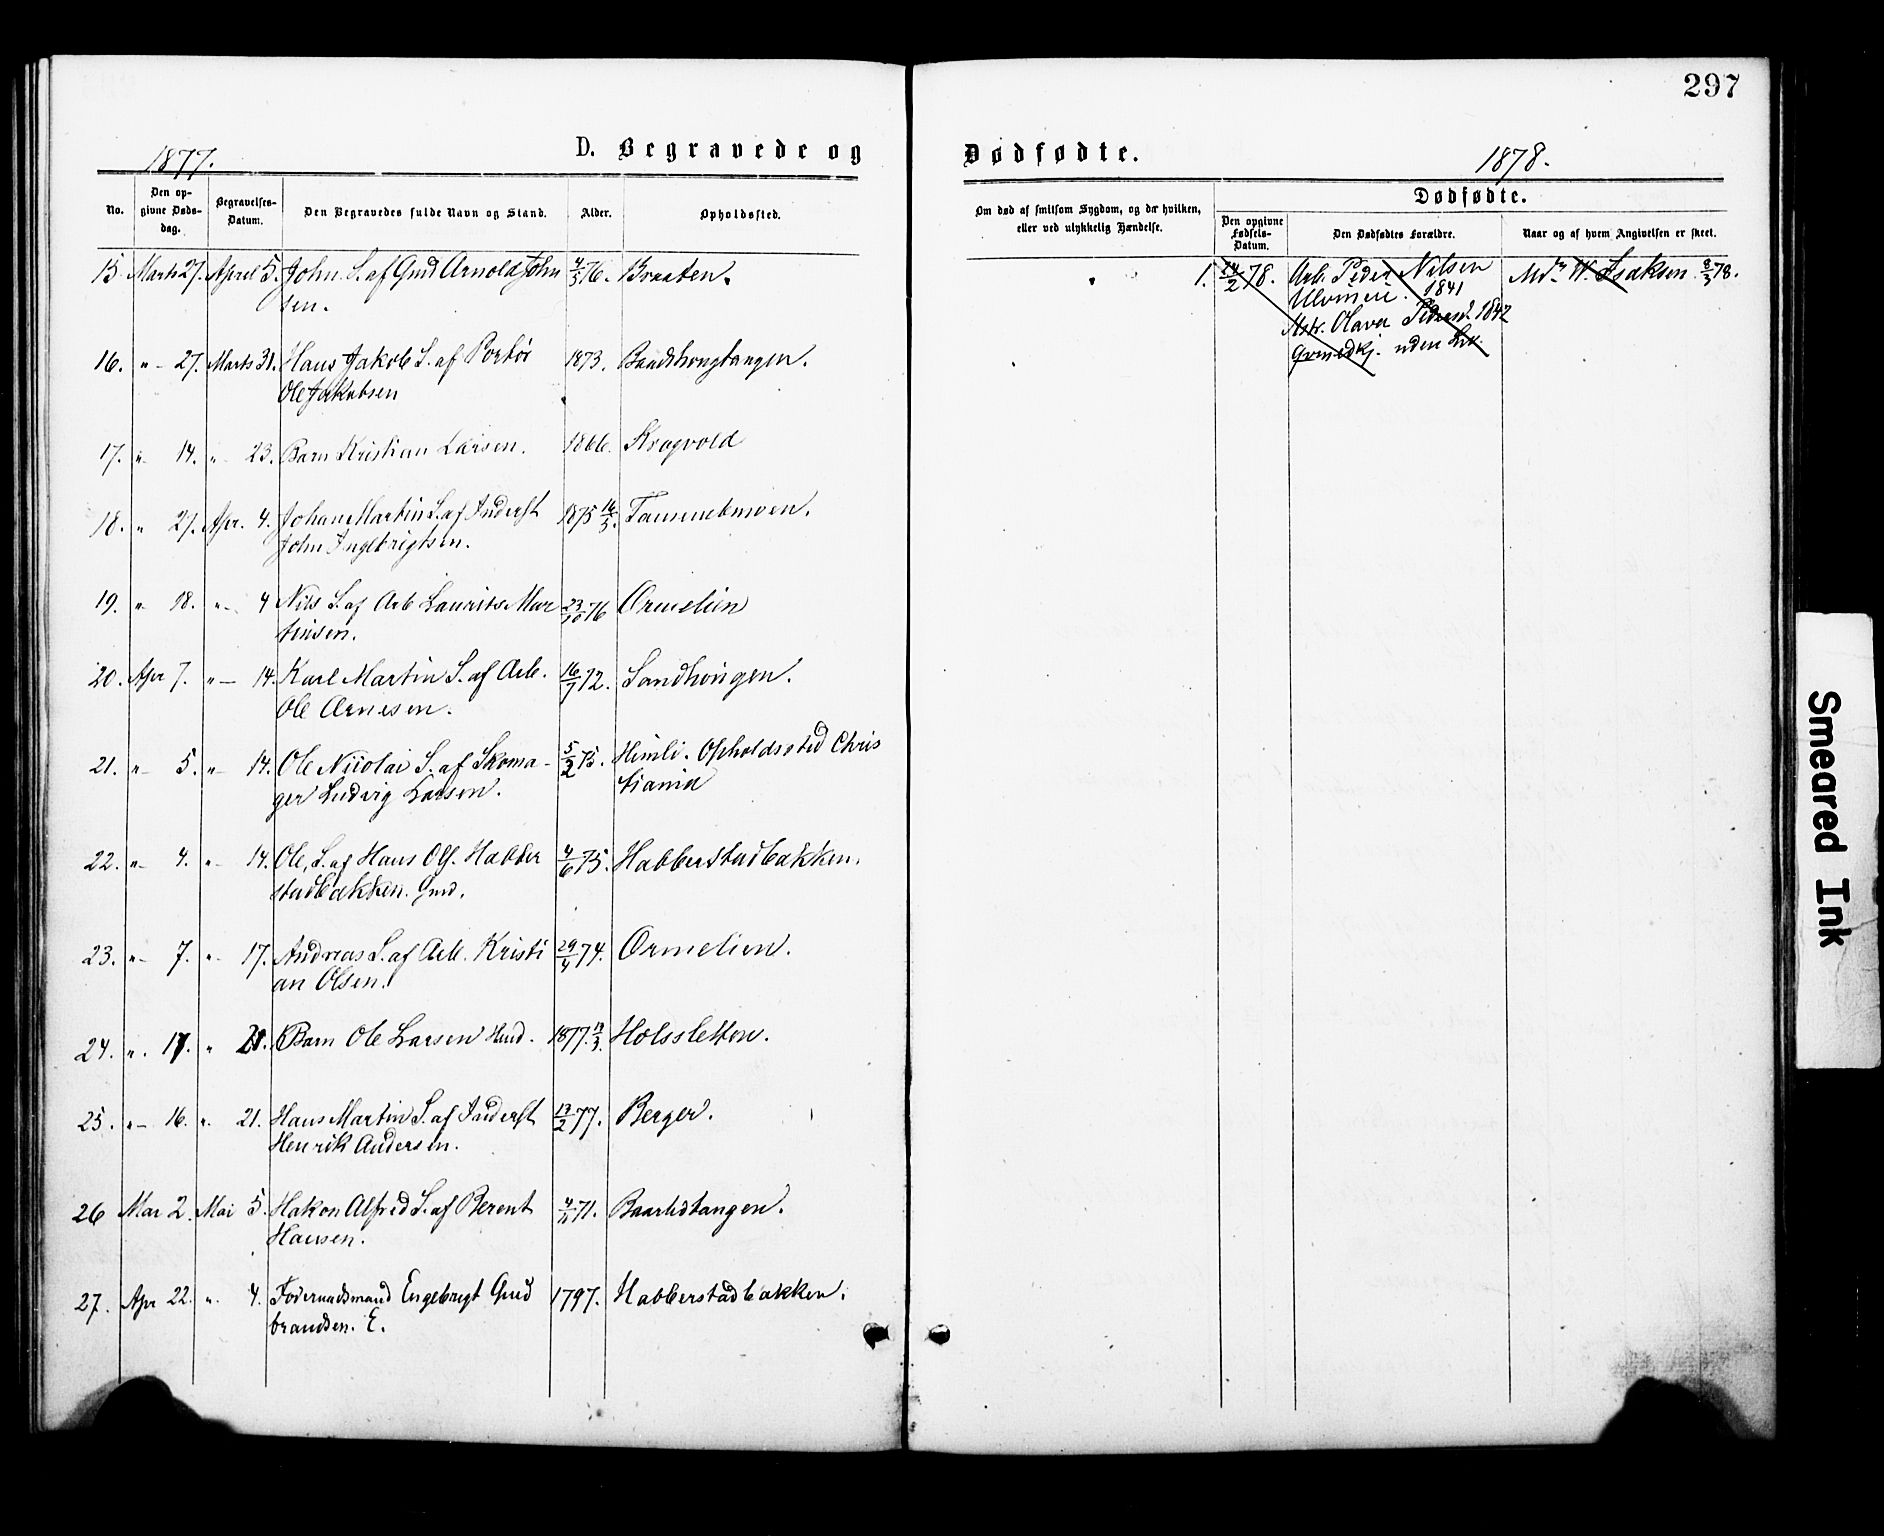 297
1877.
D. Begravede og
Dødfødte.
1878.
No.
Den op-
givne Døds-
dag.
Begravelses-
Datum.
Den Begravedes fulde Navn og Stand.
Alder.
Opholdssted.
Om død af smitsom Sygdom, og da hvilken,
eller ved ulykkelig Hændelse.
Dødfødte.
Den opgivne
Fødsels-
Datum.
Den Dødfødtes Forældre.
Naar og af hvem Angivelsen er skeet.
15. Marts 27. April 5. John. S. af Gmd Arnold John 4/5 76. Braaten.
sen.
16. " - 27. Marts 31. Hans Jakob S. af 1873.
Ole Jakobsen
17. " - 14. " - 23. Barn Kristian Larsen. 1866. Krogvold
18. " 27. Apr. 4. Johan Martin S. af Inderst 1875 16/5.
John Ingebrigtsen.
19. " - 18. " - 4 Nils S. af Arb Laurits Mar 23/10 76 Ormelien
tinsen.
20. Apr 7. " - 14. Karl Martin S. af Arb. 16/7 72.
Ole Arnesen.
21. " - 5. " - 14. Ole Nicolai S. af Skoma- 5/2 75. Himli. Opholdssted Chris
ger Ludvig Larsen. tiania
22. " - 4. " - 14. Ole, S. af Hans Ols. Habber 4/6 75. Habberstadbakken.
stadbakken. Gmd.
23. " - 7. " - 17. Andreas S. af Arb. Kristi 29/4 74. Ormelien.
an Olsen.
24. " . 17. " 21. Barn Ole Larsen Hmd. 1877. Holssletten.
25. " - 16. " . 21. Hans Martin S. af Inderst 13/2 77. Berger.
Henrik Andersen.
26 Mar 2. Mai 5. Hakon Alfred S. af Berent 4/11 71. Baarlidtangen.
Hansen.
27. Apr 22. " . 4. Foderaadsmand Engebregt Gud 1797. Habberstadbakken.
brandsen. E.
1. 14/2 78. Arb. Peder Nilsen Mdr W. Isaksen. 8/3 78.
1841
Mstr. Olava Pedersd. 1842
uden Liv.
Smeared Ink